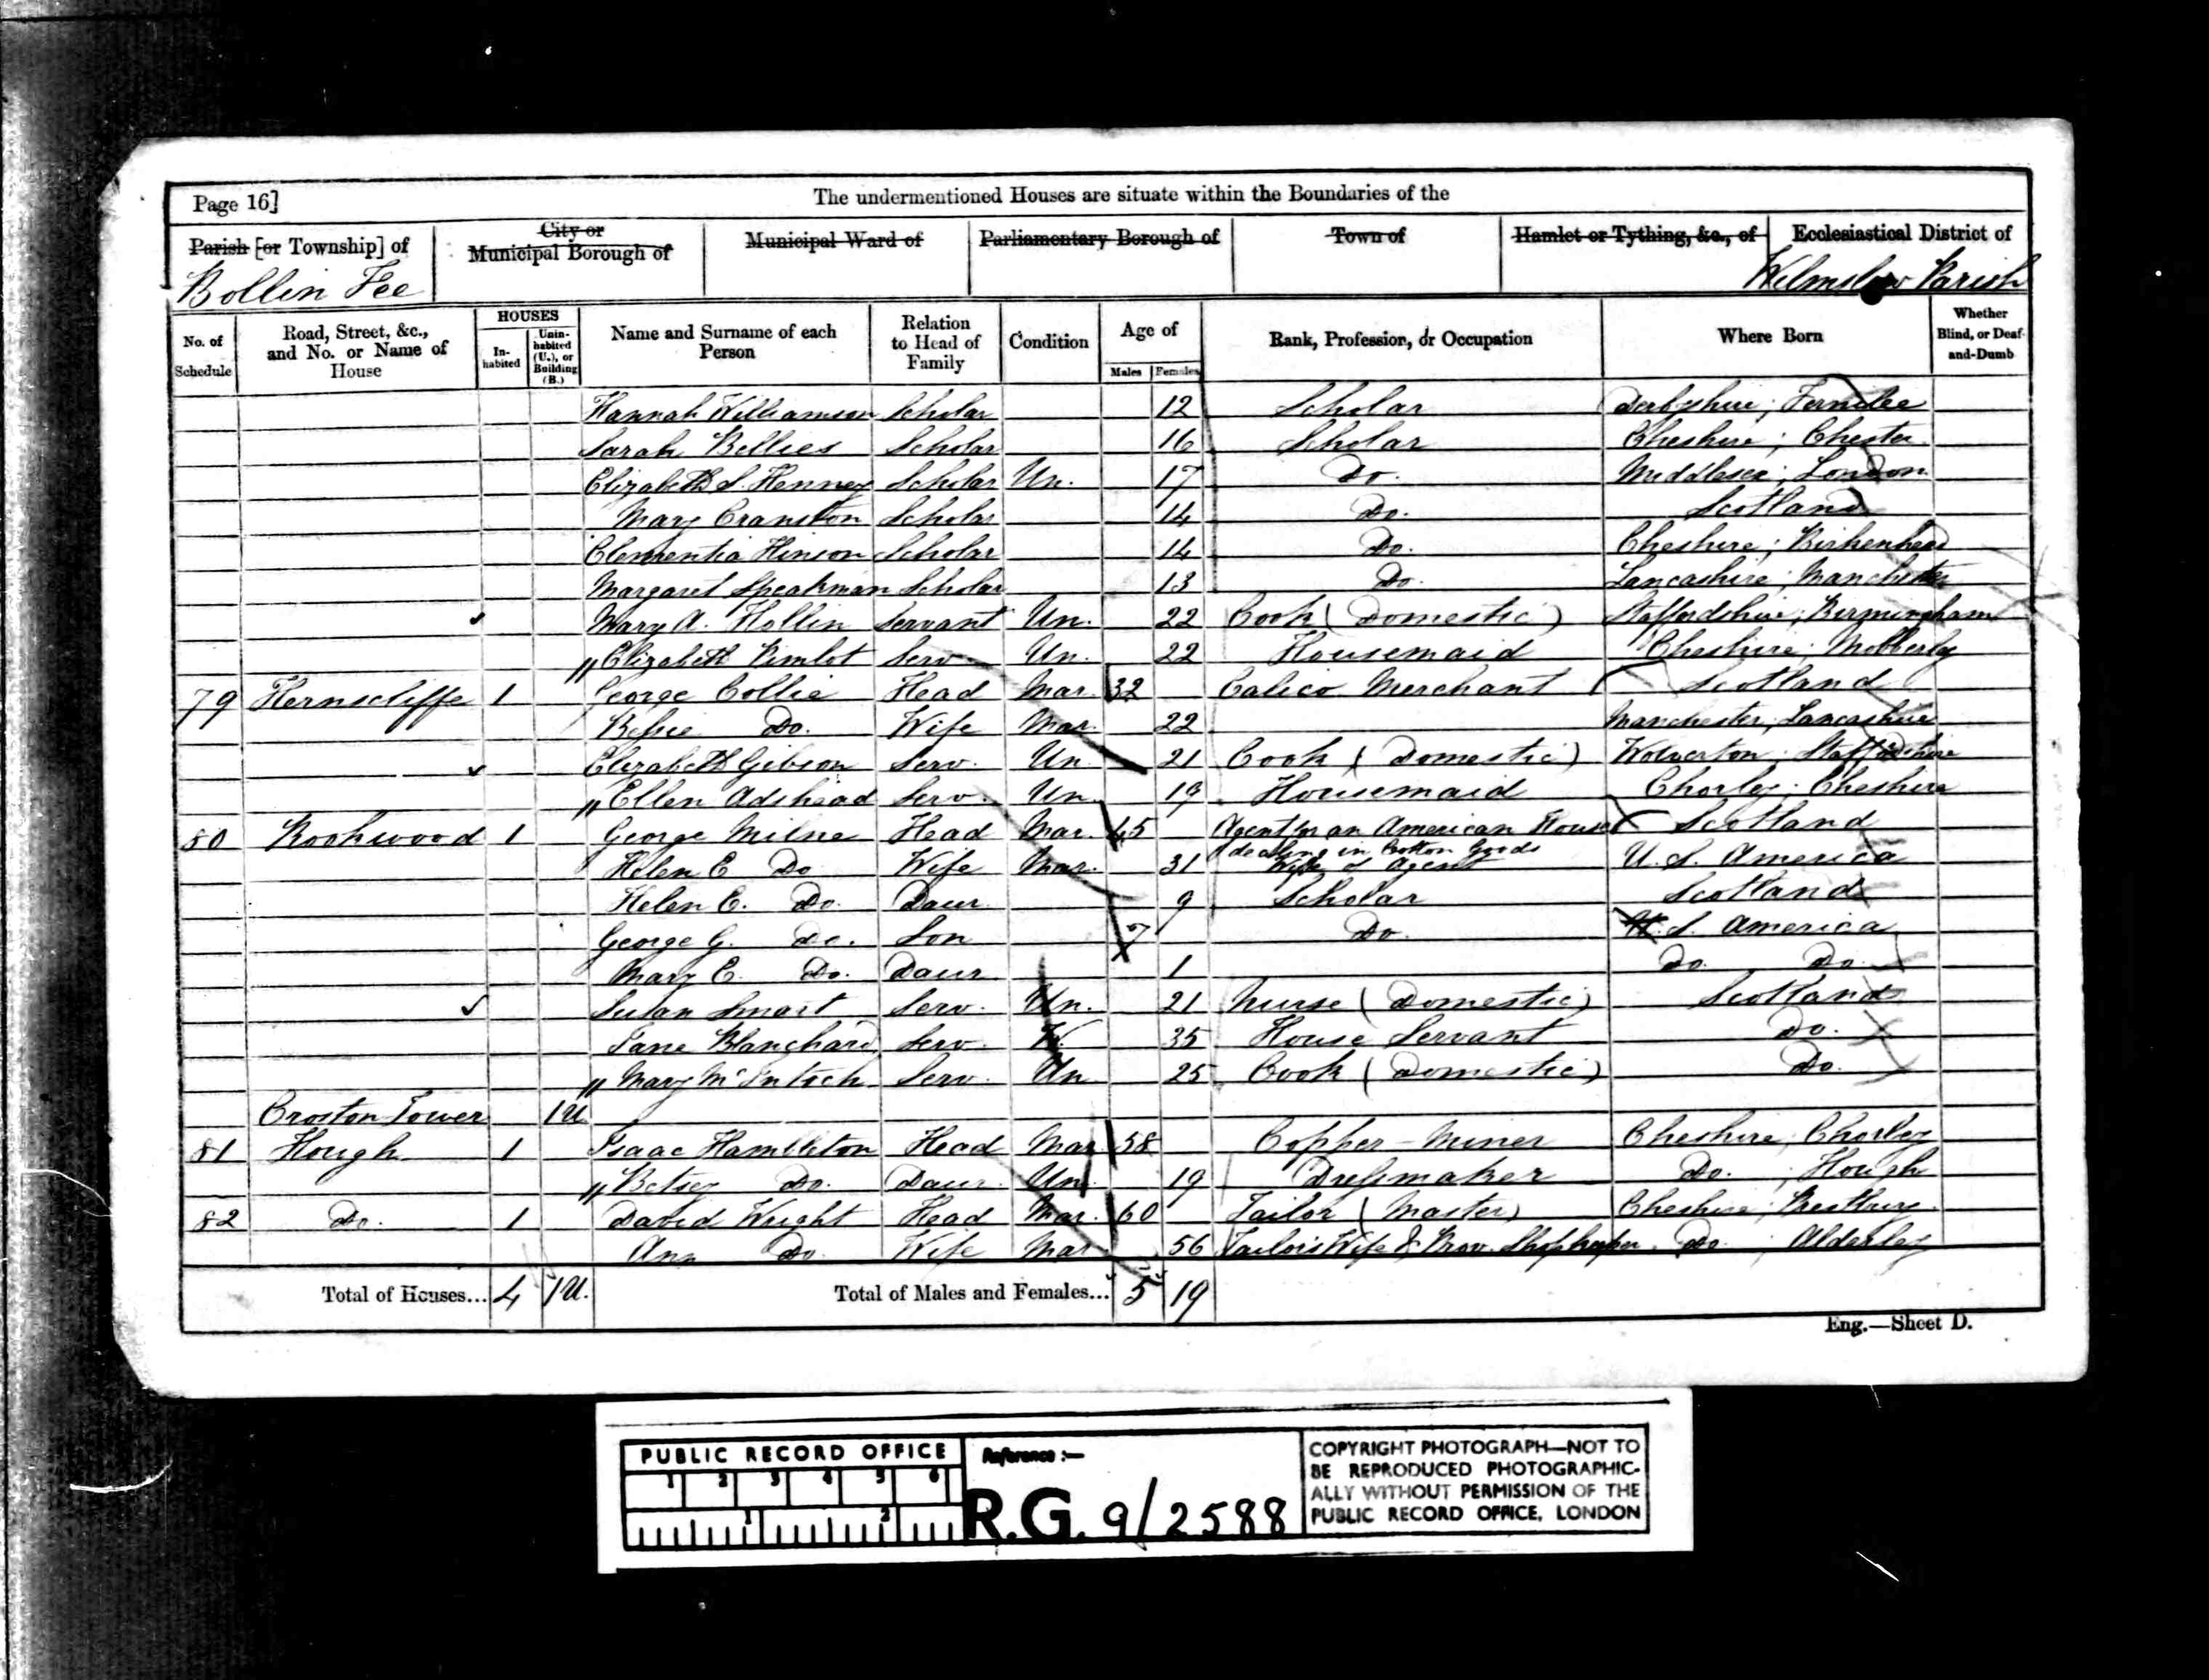 Page 16]
The undermentioned Houses are situate within the Boundaries of the
Parish [or Township] of
City or
Municipal Borough of
Municipal Ward of
Parliamentary Borough of
Town of
Hamlet or Tything, &c., of
Ecclesiastical District of
Bollin Fee
Wilmslow Parish
No. of Schedule
Road, Street, &c., and No. or Name of House
HOUSES
In-habited
Unin-habited (U.), or Building (B.)
Name and Surname of each Person
Relation to Head of Family
Condition
Age of
Males
Females
Rank, Profession, or Occupation
Where Born
Whether Blind, or Deaf-and-Dumb
Hannah Williamson Scholar 12 Scholar Derbyshire; Fernilee
Sarah Bellies Scholar 16 Scholar Cheshire; Chester
Elizabeth S. Henney Scholar Un. 17 Do. Middlesex; London
Mary Cranston Scholar 14 Do. Scotland
Clementia Hinson Scholar 14 Do. Cheshire; Birkenhead
Margaret Speakman Scholar 13 Do. Lancashire; Manchester
Mary A. Hollin Servant Un. 22 Cook (Domestic) Staffordshire; Birmingham
" Elizabeth Pimlot Serv. Un. 22 Housemaid Cheshire; Mobberley
79 Hernscliffe 1 George Collie Head Mar. 32 Calico Merchant Scotland
Bessie Do. Wife Mar. 22 Manchester, Lancashire
Elizabeth Gibson Serv. Un. 21 Cook (Domestic) Wolverton; Staffordshire
" Ellen Adshead Serv. Un. 19 Housemaid Chorley; Cheshire
80 Rookwood 1 George Milne Head Mar. 45 Agent for an American House Scotland
dealing in Cotton Goods
Helen E Do Wife Mar. 31 Wife of Agent U. S. America
Helen E. Do. Daur 9 Scholar Scotland
George G. Do. Son 7 Do. U. S. America
Mary E. Do. Daur 1 Do. Do.
Susan Smart Serv. Un. 21 Nurse (Domestic) Scotland
Jane Blanchard Serv. W. 35 House Servant Do.
" Mary McIntosh Serv. Un. 25 Cook (Domestic) Do.
Croston Tower 1U
81 Hough 1 Isaac Hambleton Head Mar 58 Copper-Miner Cheshire; Chorley
" Betsey Do. Daur. Un. 19 Dressmaker Do. ; Hough
82 Do. 1 David Wright Head Mar. 60 Tailor (Master) Cheshire; Prestbury
Ann Do. Wife Mar 56 Tailor's Wife & Prov. Shopkeeper Do. ; Alderley
Total of Houses... 4 1U.
Total of Males and Females... 5 19
Eng.—Sheet D.
PUBLIC RECORD OFFICE
1 2 3 4 5 6
1 2
Reference :—
R.G. 9/2588
COPYRIGHT PHOTOGRAPH—NOT TO
BE REPRODUCED PHOTOGRAPHIC-
ALLY WITHOUT PERMISSION OF THE
PUBLIC RECORD OFFICE, LONDON